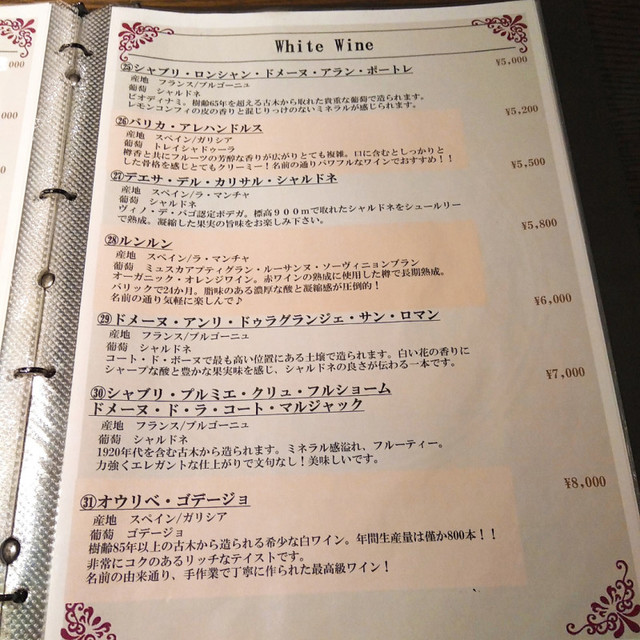 White Wine
㉕シャブリ・ロンシャン・ドメーヌ・アラン・ポートレ
¥5,000
産地　フランス/ブルゴーニュ
葡萄　シャルドネ
ビオディナミ、樹齢65年を超える古木から取れた貴重な葡萄で造られます。
レモンコンフィの皮の香りと混じりっけのないミネラルが感じられます。
¥5,200
㉖バリカ・アレハンドルス
産地　スペイン/ガリシア
葡萄　トレイシャドゥーラ
樽香と共にフルーツの芳醇な香りが広がりとても複雑。口に含むとしっかりと
した骨格を感じとてもクリーミー！名前の通りパワフルなワインでおすすめ！！
¥5,500
㉗デエサ・デル・カリサル・シャルドネ
産地　スペイン/ラ・マンチャ
葡萄　シャルドネ
ヴィノ・デ・パゴ認定ボデガ。標高９００ｍで取れたシャルドネをシュールリー
で熟成。凝縮した果実の旨味をお楽しみ下さい。
¥5,800
㉘ルンルン
産地　スペイン/ラ・マンチャ
葡萄　ミュスカアプティグラン・ルーサンヌ・ソーヴィニョンブラン
オーガニック・オレンジワイン。赤ワインの熟成に使用した樽で長期熟成。
バリックで24か月。脂味のある濃厚な酸と凝縮感が圧倒的！
名前の通り気軽に楽しんで♪
¥6,000
㉙ドメーヌ・アンリ・ドゥラグランジェ・サン・ロマン
産地　フランス/ブルゴーニュ
葡萄　シャルドネ
コート・ド・ボーヌで最も高い位置にある土壌で造られます。白い花の香りに
シャープな酸と豊かな果実味を感じ、シャルドネの良さが伝わる一本です。
¥7,000
㉚シャブリ・プルミエ・クリュ・フルショーム
ドメーヌ・ド・ラ・コート・マルジャック
産地　フランス/ブルゴーニュ
葡萄　シャルドネ
1920年代を含む古木から造られます。ミネラル感溢れ、フルーティー。
力強くエレガントな仕上がりで文句なし！美味しいです。
¥8,000
㉛オウリベ・ゴデージョ
産地　スペイン/ガリシア
葡萄　ゴデージョ
樹齢85年以上の古木から造られる希少な白ワイン。年間生産量は僅か800本！！
非常にコクのあるリッチなテイストです。
名前の由来通り、手作業で丁寧に作られた最高級ワイン！